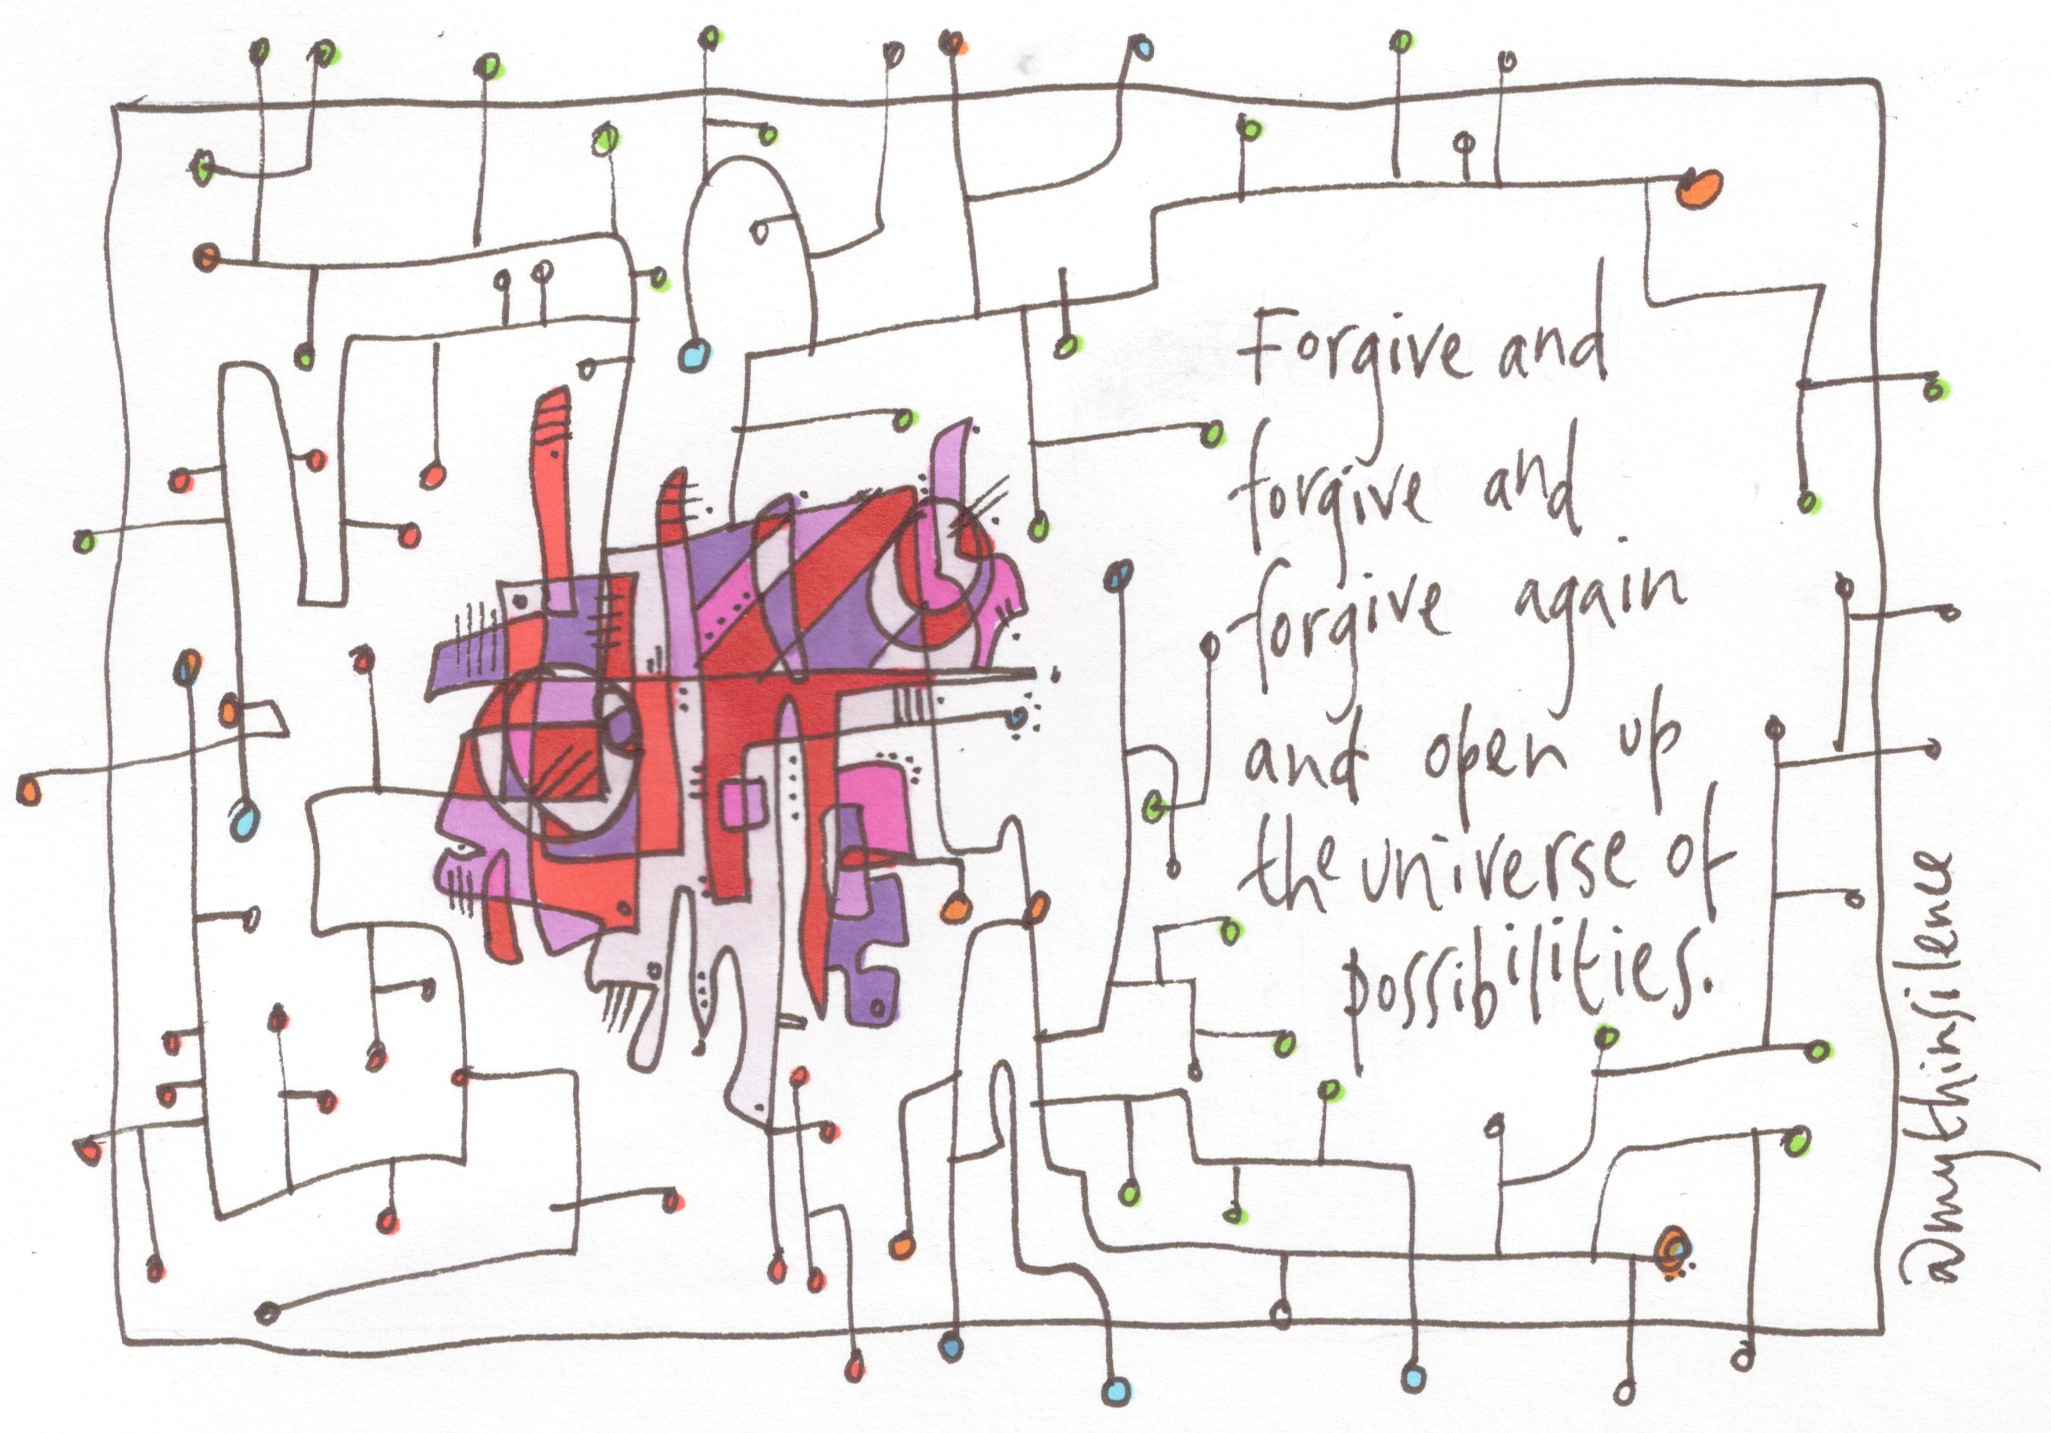 Forgive and
forgive and
forgive again
and open up
the universe of
possibilities.
@mythinsilence